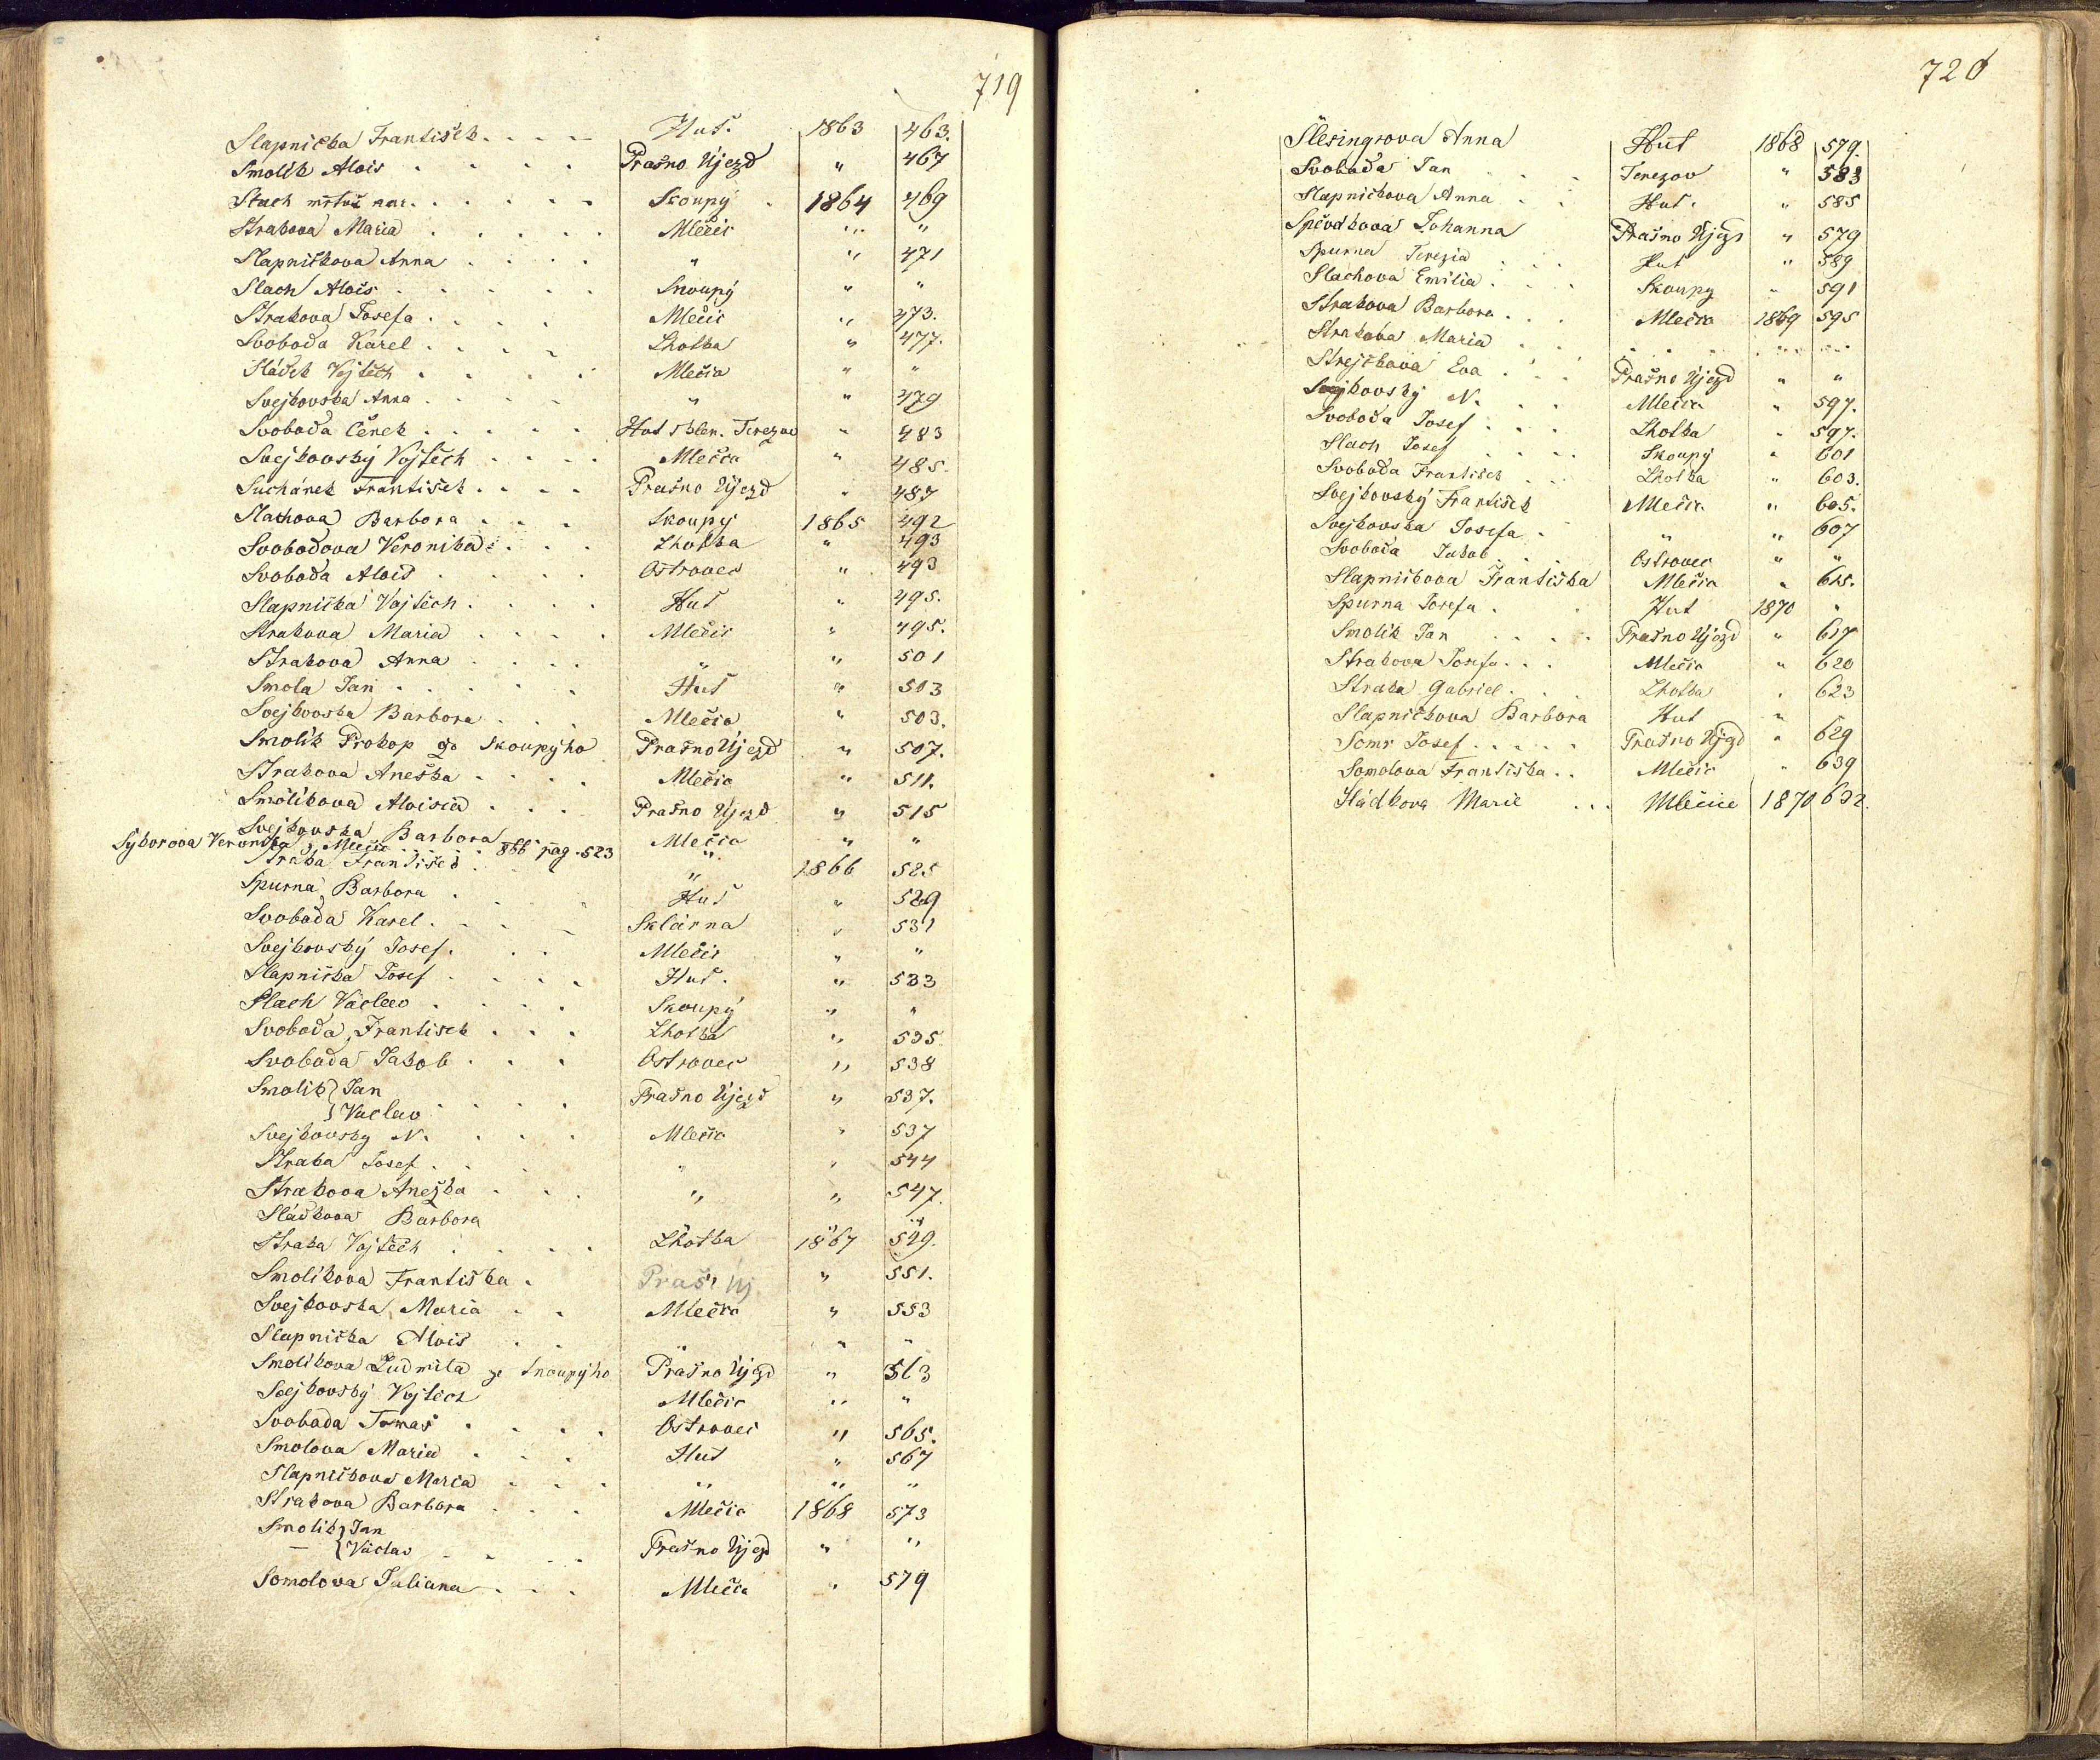 719
Slapnička František. . . . Huť. 1863 463.
Smolík Alois . . . . Prašno Újezd " 467
Stach mrtvě nar. . . . . . Skoupý . 1864 469
Strakova Maria . . . . . Mlečic " "
Slapničkova Anna . . . . " " 471
Slach Alois . . . . . Skoupý " "
Strakova Josefa . . . . Mlečic " 473.
Svoboda Karel . . . . Lhotka " 477.
Sládek Vojtěch . . . . Mlečic " "
Svejkovska Anna . . . . " " 479
Svoboda Čeněk . . . . . Huť sklen. Terezov " 483
Svejkovský Vojtěch . . . . Mlečic " 485.
Suchánek František . . . . Prašno Újezd " 487
Slachova Barbora . . . Skoupý 1865 492
Svobodova Veronika . . . Lhotka " 493
Svoboda Alois . . . . Ostrovec " 493
Slapnička Vojtěch . . . . Huť " 495.
Strakova Maria . . . . Mlečic " 495.
Strakova Anna . . . . " " 501
Smola Jan . . . . . . Huť " 503
Svejkovska Barbora . . . Mlečic " 503.
Smolík Prokop ze Skoupýho Prašno Újezd " 507.
Strakova Anežka . . . . Mlečic " 511.
Smolíkova Aloisia . . . Prašno Újezd " 515
Svejkovska Barbora Mlečic " "
Sykorova Veronika, Mlečic 866 pag. 523
Straka František . " 1866 525
Spurna Barbora . . . Huť " 529
Svoboda Karel . . . . Sklárna " 531
Svejkovský Josef . . . Mlečic " "
Slapnička Josef . . . . Huť. " 533
Slach Václav . . . . Skoupý " "
Svoboda František . . . Lhotka " 535
Svoboda Jakob . . . Ostrovec " 538
Smolík } Jan
} Václav . . . . Prašno Újezd " 537.
Svejkovsky N. . . . . Mlečic " 537
Straka Josef . . . " " 544
Strakova Anežka . . . " " 547.
Sládkova Barbora " " "
Straka Vojtěch . . . . Lhotka 1867 549.
Smolíkova Františka . Praš. Új. " 551.
Svejkovska Maria . . Mlečic " 553
Slapnička Alois . . " " "
Smolíkova Ludmila ze Skoupýho Prašno Újezd " 563
Svejkovský Vojtěch Mlečic " "
Svoboda Tomaš . . . . Ostrovec " 565.
Smolova Maria . . . Huť " 567
Slapničkova Maria . . . " " "
Strakova Barbora . . . Mlečic 1868 573
Smolík } Jan
— } Václav . . . . Prašno Újezd " "
Somolova Juliana . . . Mlečic " 579
720
Šlesingrova Anna Huť 1868 579.
Svoboda Jan . . . Terezov " 583
Slapničkova Anna . . Huť. " 585
Spěvakova Johanna Prašno Újezd " 579
Spurna Terezia . . . Huť " 589
Slachova Emilia . . . Skoupy " 591
Strakova Barbora . . . Mlečic 1869 595
Strakova Maria . . " " "
Strejčkova Eva . . . Prašno Újezd " "
Svejkovský N. . . Mlečic " 597.
Svoboda Josef . . . Lhotka " 597.
Slach Josef . . . . Skoupý " 601
Svoboda František . . . Lhotka " 603.
Svejkovský František Mlečic " 605.
Svejkovska Josefa . " " 607
Svoboda Jakob . . . Ostrovec " "
Slapničkova Františka Mlečic " 615.
Spurna Josefa . . Huť 1870 "
Smolík Jan . . . . Prašno Újezd " 617
Strakova Josefa . . . Mlečic " 620
Straka Gabriel . . . Lhotka " 623
Slapničkova Barbora Huť "
Somr Josef . . . . . Prašno Újezd " 629
Somolova Františka . . Mlečic " 639
Sládkova Marie . . . Mlečice 1870 632.